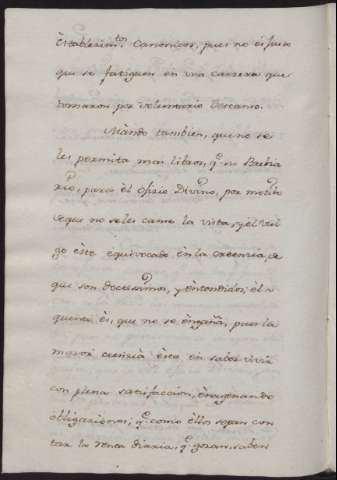 Establecim.tos Canonicos, pues no es justo
que se fatiguen en una carrera que
tomaron por voluntario descanso.
Mando tambien, que no se
les permita mas libros, q.e su Brebia
rio, para el oficio Divino, por motibo
de que no se les canse la vista, y el Vul
go este equivocado en la creencia, de
que son doctissimos, y entendidos; el q.e
quiera es, que no se engañe, pues la
mayor ciencia esta en saber vivir
con plena satisfaccion, enagenando
obligaciones; q.e como ellos sepan con
tar la renta diaria, q.e gozan, saben